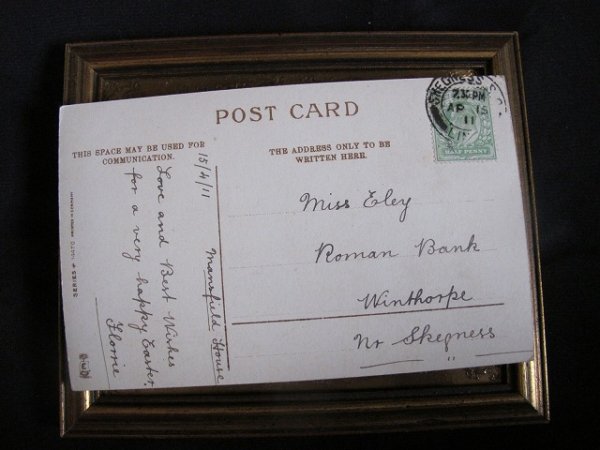 POST CARD
THIS SPACE MAY BE USED FOR
COMMUNICATION.
THE ADDRESS ONLY TO BE
WRITTEN HERE.
15/4/11
Mansfield House
Love and Best Wishes
for a very happy Easter.
Florrie
Miss Eley
Roman Bank
Winthorpe
Nr Skegness
SKEGNESS
7.30 PM
AP 15
11
HALF PENNY
SERIES
PRINTED IN GERMANY